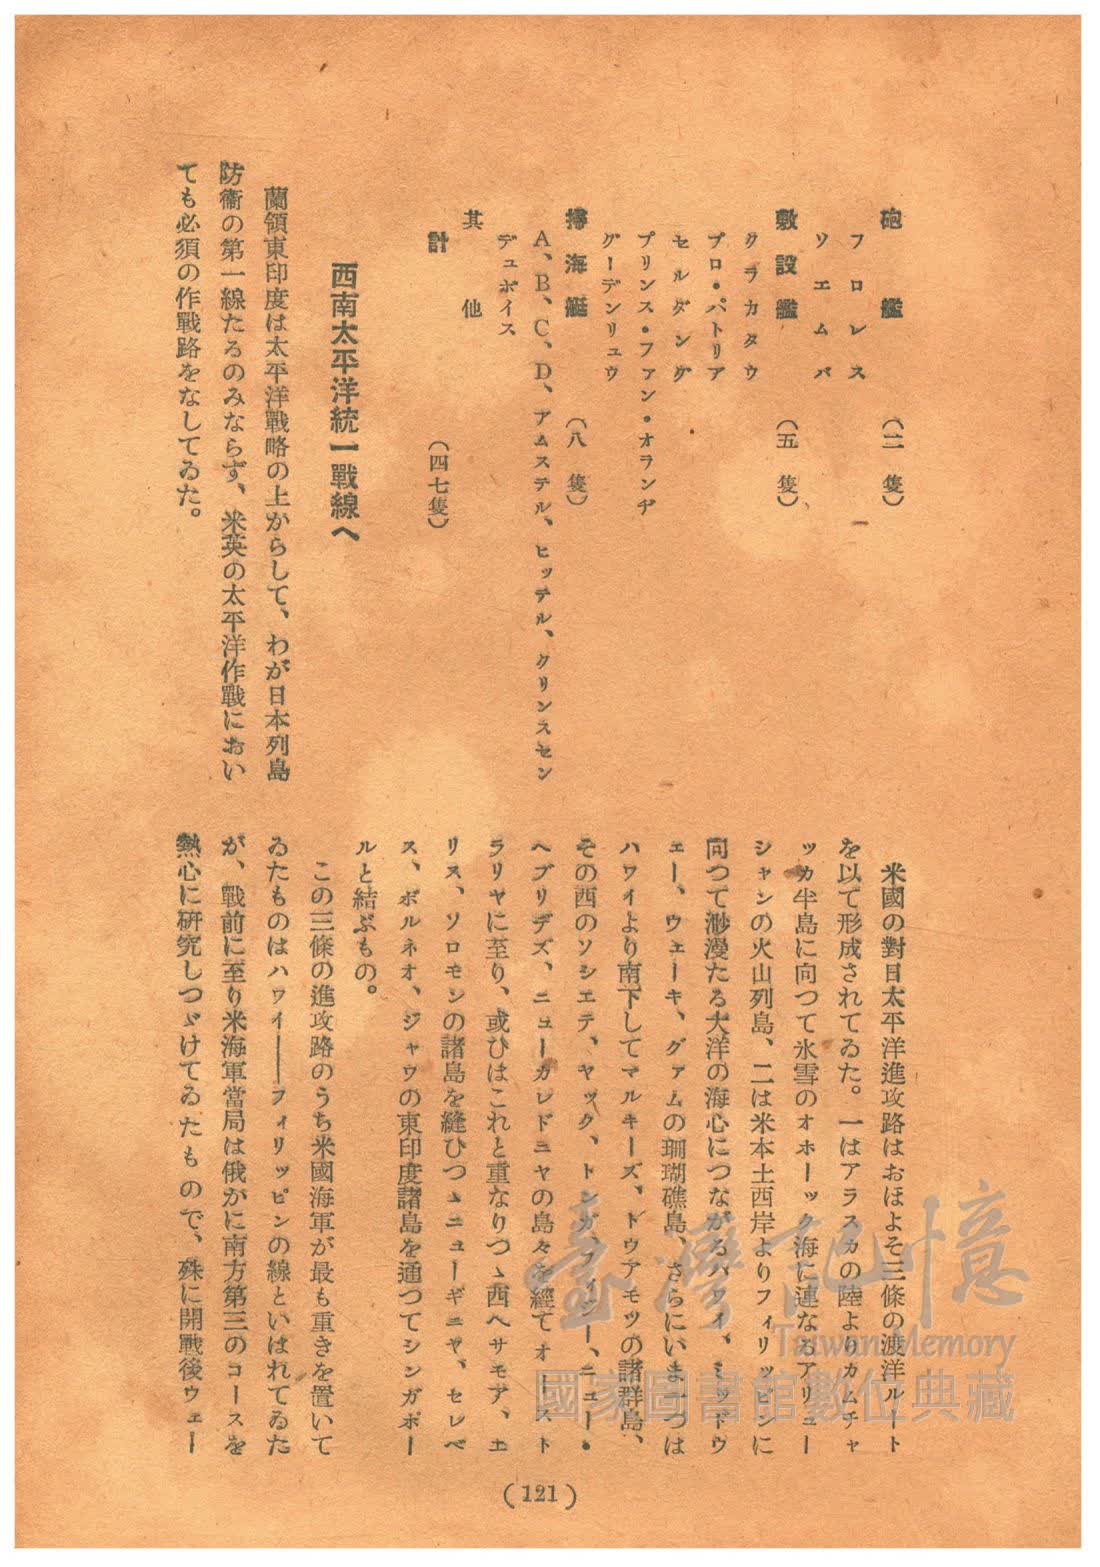 砲艦　（二隻）
フロレス
ソエムバ
敷設艦　（五隻）
クラカタウ
プロ・パトリア
セルダング
プリンス・ファン・オランヂ
グーデンリュウ
掃海艇　（八隻）
A、B、C、D、アムステル、ヒッテル、クリンスセン
デュボイス
其他
計　（四七隻）
西南太平洋統一戰線へ
蘭領東印度は太平洋戰略の上からして、わが日本列島
防衞の第一線たるのみならず、米英の太平洋作戰におい
ても必須の作戰路をなしてゐた。
米國の對日太平洋進攻路はおほよそ三條の渡洋ルート
を以て形成されてゐた。一はアラスカの陸よりカムチャ
ッカ半島に向つて氷雪のオホーック海に連なるアリュー
シャンの火山列島、二は米本土西岸よりフィリッピンに
向つて渺漫たる大洋の海心につながるハワイ、ミッドウ
ェー、ウェーキ、グァムの珊瑚礁島、さらにいま一つは
ハワイより南下してマルキーズ、トウアモツの諸群島、
その西のソシエテ、ヤック、トンガ、フィジー、ニュー・
ヘブリデズ、ニューカレドニヤの島々を經てオースト
ラリヤに至り、或ひはこれと重なりつゝ西へサモア、エ
リス、ソロモンの諸島を縫ひつゝニューギニヤ、セレベ
ス、ボルネオ、ジャワの東印度諸島を通つてシンガポー
ルと結ぶもの。
この三條の進攻路のうち米國海軍が最も重きを置いて
ゐたものはハワイ――フィリッピンの線といはれてゐた
が、戰前に至り米海軍當局は俄かに南方第三のコースを
熱心に硏究しつゞけてゐたもので、殊に開戰後ウェー
(121)
臺灣記憶
Taiwan Memory
國家圖書館數位典藏